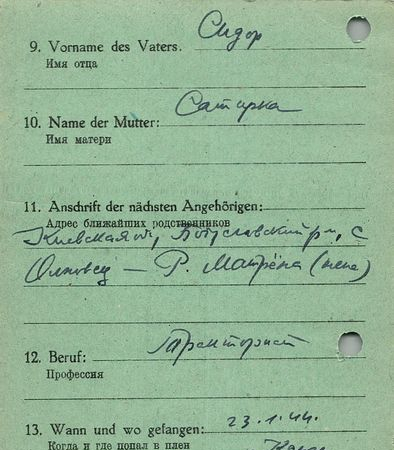 9. Vorname des Vaters. Сидор
Имя отца
10. Name der Mutter:
Имя матери
11. Anschrift der nächsten Angehörigen:
Адрес ближайших родственников
Киевская об, Богуславский р-н, с
— Р. Матрёна (жена)
12. Beruf: Тракторист
Профессия
13. Wann und wo gefangen: 23.1.44.
Когда и где попал в плен